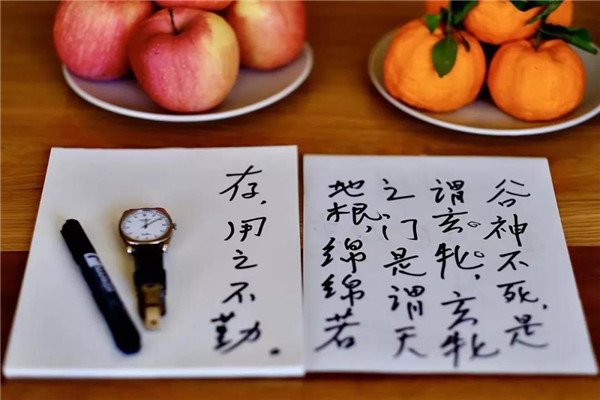 谷神不死,是
谓玄。牝。玄牝
之门是谓天
地根,绵绵若
存,用之不勤。